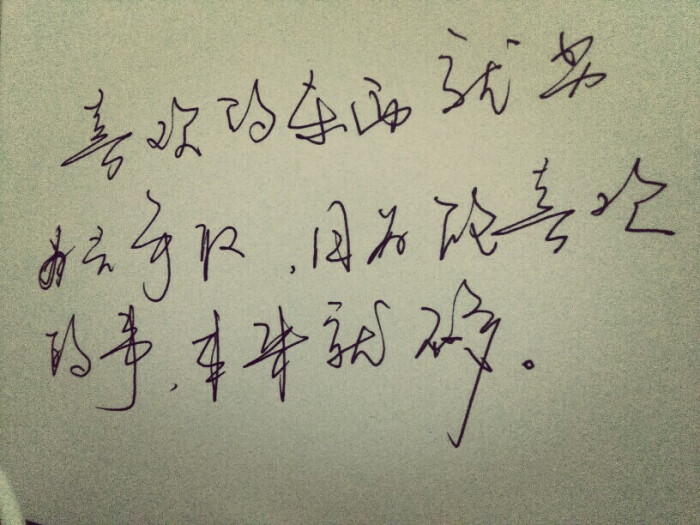 喜欢的东西就
去争取，因为能喜欢
的事，本来就不多。